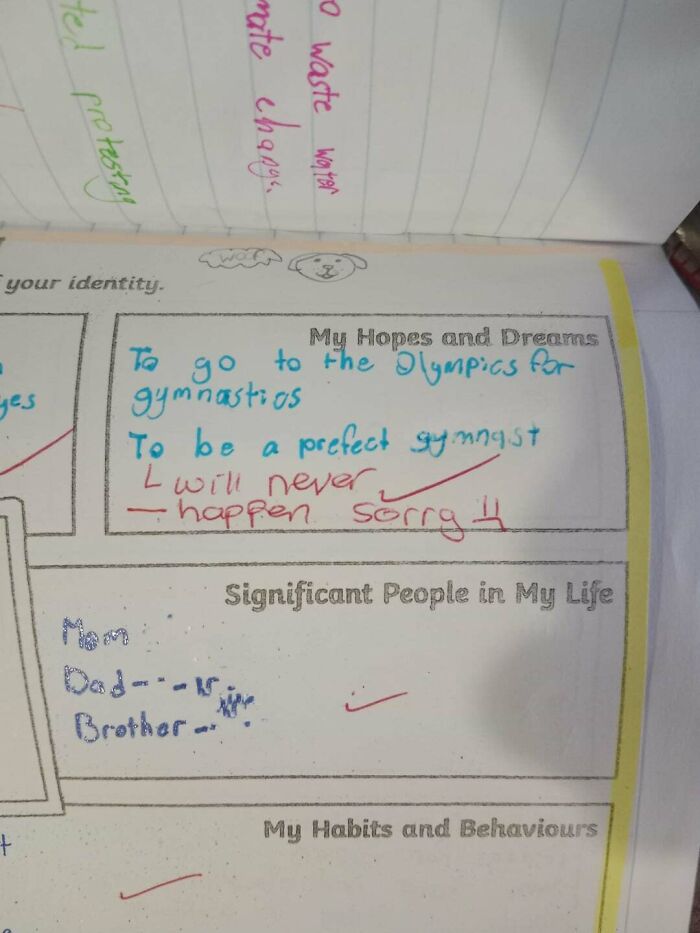 to waste water
mate change.
ted protesting
woof
your identity.
yes
My Hopes and Dreams
To go to the Olympics for
gymnastics
To be a prefect gymnast
will never
happen sorry
Significant People in My Life
Mom
Dad
Brother
My Habits and Behaviours